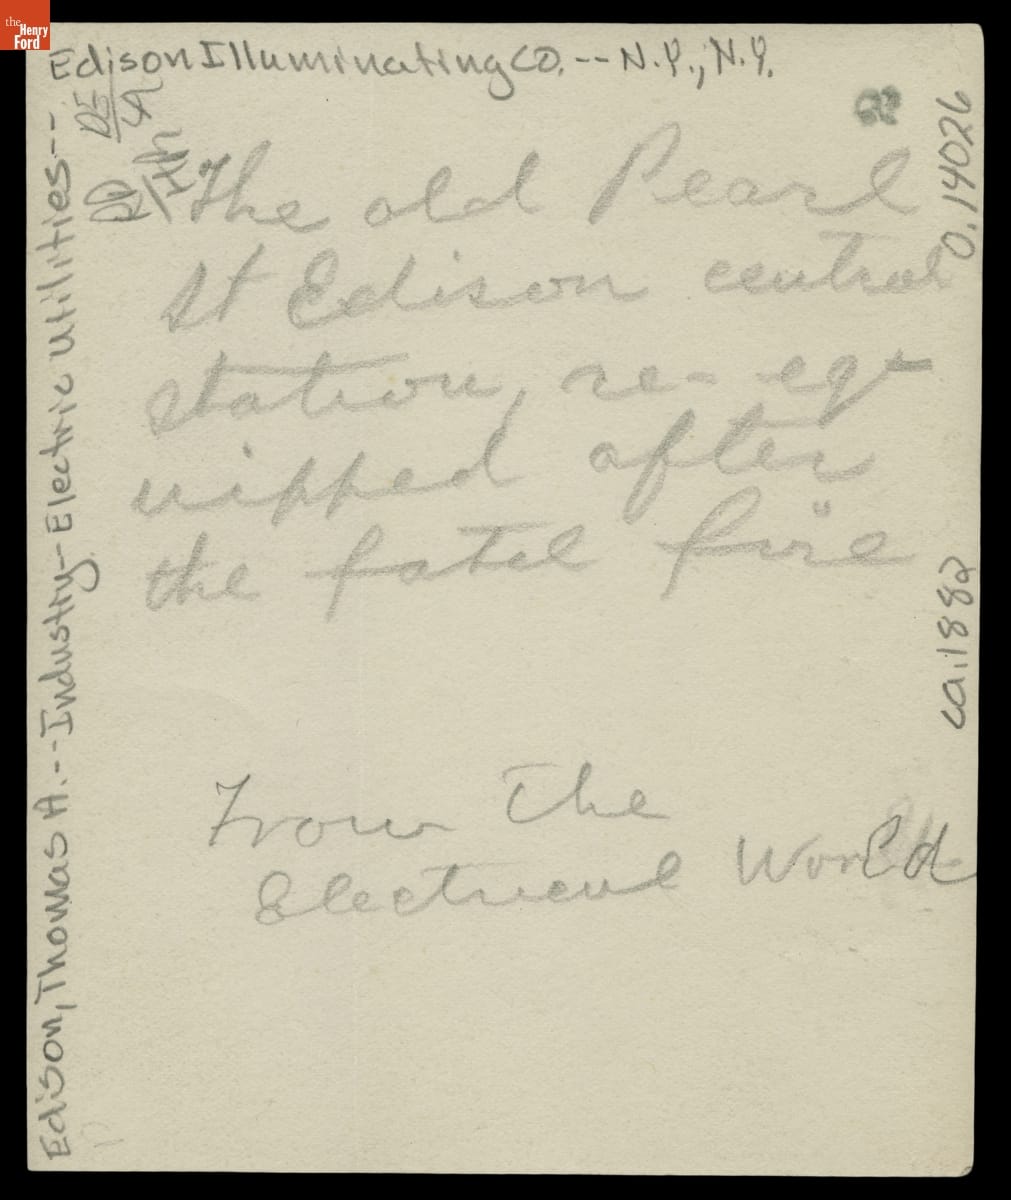 the
Henry
Ford
Edison Illuminating Co. -- N.Y., N.Y.
Edison, Thomas A. -- Industry - Electric utilities --
0.14026
ca. 1882
The old Pearl
St Edison central
station, re- eq-
uipped after
the fatal fire
From The
Electrical World